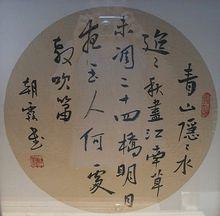 青山隱〻水
迢〻秋盡江南草
未凋二十四橋明月
夜玉人何處
教吹笛
朝霞書